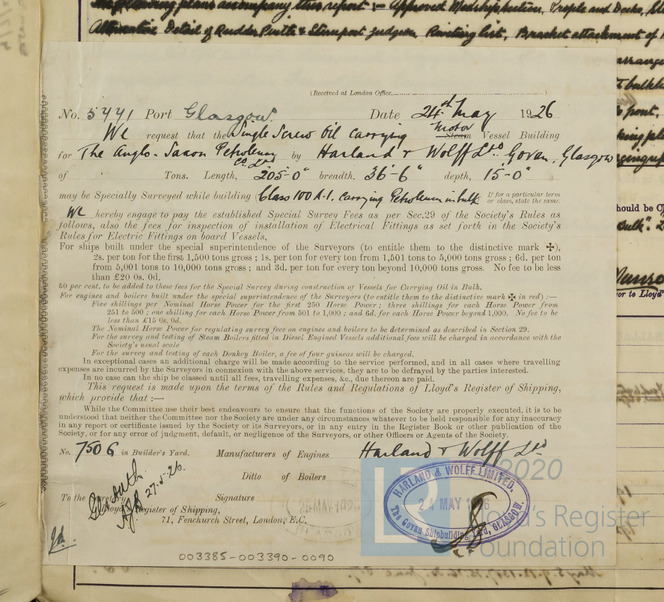 plans accompany this report :— Approved Midship section, Profile and Decks,
Detail of Rudder Pintle & Sternpost gudgeon Painting list, Bracket attachment of
(Received at London Office
No. 5441 Port Glasgow. Date 24th May 1926
We request that the Single Screw Oil Carrying Steam Motor Vessel Building
for The Anglo-Saxon Petroleum Co. Ltd by Harland & Wolff Ltd Govan, Glasgow
of Tons. Length, 205-0" breadth. 36'-6" depth, 15'-0"
may be Specially Surveyed while building Class 100 A.1. Carrying Petroleum in bulk If for a particular term or class, state the same.
We hereby engage to pay the established Special Survey Fees as per Sec.29 of the Society's Rules as
follows, also the fees for inspection of installation of Electrical Fittings as set forth in the Society's
Rules for Electric Fittings on board Vessels,
For ships built under the special superintendence of the Surveyors (to entitle them to the distinctive mark ✠),
2s. per ton for the first 1,500 tons gross ; 1s. per ton for every ton from 1,501 to 5,000 tons gross ; 6d. per ton
from 5,001 tons to 10,000 tons gross ; and 3d. per ton for every ton beyond 10,000 tons gross. No fee to be less
than £20 0s. 0d.
50 per cent. to be added to these fees for the Special Survey during construction of Vessels for Carrying Oil in Bulk.
For engines and boilers built under the special superintendence of the Surveyors (to entitle them to the distinctive mark ✠ in red) :—
Five shillings per Nominal Horse Power for the first 250 Horse Power ; three shillings for each Horse Power from
251 to 500 ; one shilling for each Horse Power from 501 to 1,000 ; and 6d. for each Horse Power beyond 1,000. No fee to be
less than £15 0s. 0d.
The Nominal Horse Power for regulating survey fees on engines and boilers to be determined as described in Section 29.
For the survey and testing of Steam Boilers fitted in Diesel Engined Vessels additional fees will be charged in accordance with the
Society's usual scale
For the survey and testing of each Donkey Boiler, a fee of four guineas will be charged.
In exceptional cases an additional charge will be made according to the service performed, and in all cases where travelling
expenses are incurred by the Surveyors in connexion with the above services, they are to be defrayed by the parties interested.
In no case can the ship be classed until all fees, travelling expenses, &c., due thereon are paid.
This request is made upon the terms of the Rules and Regulations of Lloyd's Register of Shipping,
which provide that :—
While the Committee use their best endeavours to ensure that the functions of the Society are properly executed, it is to be
understood that neither the Committee nor the Society are under any circumstances whatever to be held responsible for any inaccuracy
in any report or certificate issued by the Society or its Surveyors, or in any entry in the Register Book or other publication of the
Society, or for any error of judgment, default, or negligence of the Surveyors, or other Officers or Agents of the Society.
No. 750 G in Builder's Yard. Manufacturers of Engines Harland & Wolff Ltd
Ditto of Boilers
27-5-26.
To the
Signature
Register of Shipping,
71, Fenchurch Street, London, E.C.
HARLAND & WOLFF LIMITED.
24 MAY 1926
The Govan Shipbuilding Yard, GLASGOW.
2020
Lloyd's Register
Foundation
003385-003390-0090